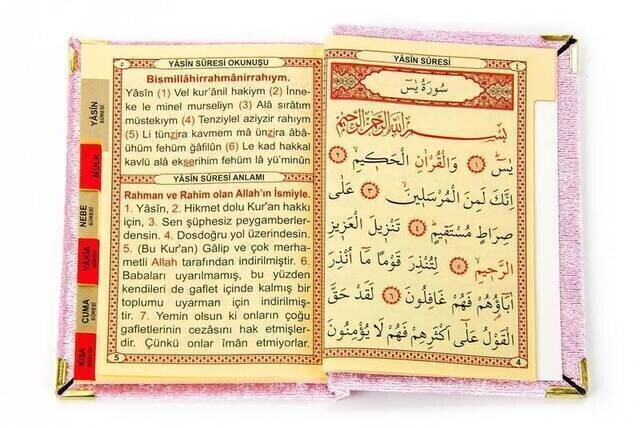 YÂSÎN SÛRESİ
٤
سُورَةُ يٰسٓ
بِسْمِ اللّٰهِ الرَّحْمٰنِ الرَّحِيمِ
يٰسٓ ١ وَالْقُرْاٰنِ الْحَكِيمِ ٢
اِنَّكَ لَمِنَ الْمُرْسَلِينَ ٣ عَلٰى
صِرَاطٍ مُسْتَقِيمٍ ٤ تَنْزِيلَ الْعَزِيزِ
الرَّحِيمِ ٥ لِتُنْذِرَ قَوْمًا مَٓا اُنْذِرَ
اٰبَٓاؤُ۬هُمْ فَهُمْ غَافِلُونَ ٦ لَقَدْ حَقَّ
الْقَوْلُ عَلٰٓى اَكْثَرِهِمْ فَهُمْ لَا يُؤْمِنُونَ
4
٥
YÂSÎN SÛRESİ OKUNUŞU
Bismillâhirrahmânirrahıym.
Yâsîn (1) Vel kur'ânil hakiym (2) İnne-
ke le minel murseliyn (3) Alâ sırâtım
müstekıym (4) Tenziylel aziyzir rahıym
(5) Li tünzira kavmem mâ ünzira âbâ-
ühüm fehüm gâfilûn (6) Le kad hakkal
kavlü alâ ekserihim fehüm lâ yü'minûn
YÂSİN SÛRESİ ANLAMI
Rahman ve Rahim olan Allah'ın İsmiyle.
1. Yâsîn, 2. Hikmet dolu Kur'an hakkı
için, 3. Sen şüphesiz peygamberler-
densin. 4. Dosdoğru yol üzerindesin.
5. (Bu Kur'an) Gâlip ve çok merha-
metli Allah tarafından indirilmiştir. 6.
Babaları uyarılmamış, bu yüzden
kendileri de gaflet içinde kalmış bir
toplumu uyarman için indirilmiş-
tir. 7. Yemin olsun ki onların çoğu
gafletlerinin cezasını hak etmişler-
dir. Çünkü onlar îmân etmiyorlar.
5
YÂSİN
SÛRESİ
MÜLK
NEBE
SÛRESİ
VÂKIA
SÛRESİ
CUMA
SÛRESİ
KISA